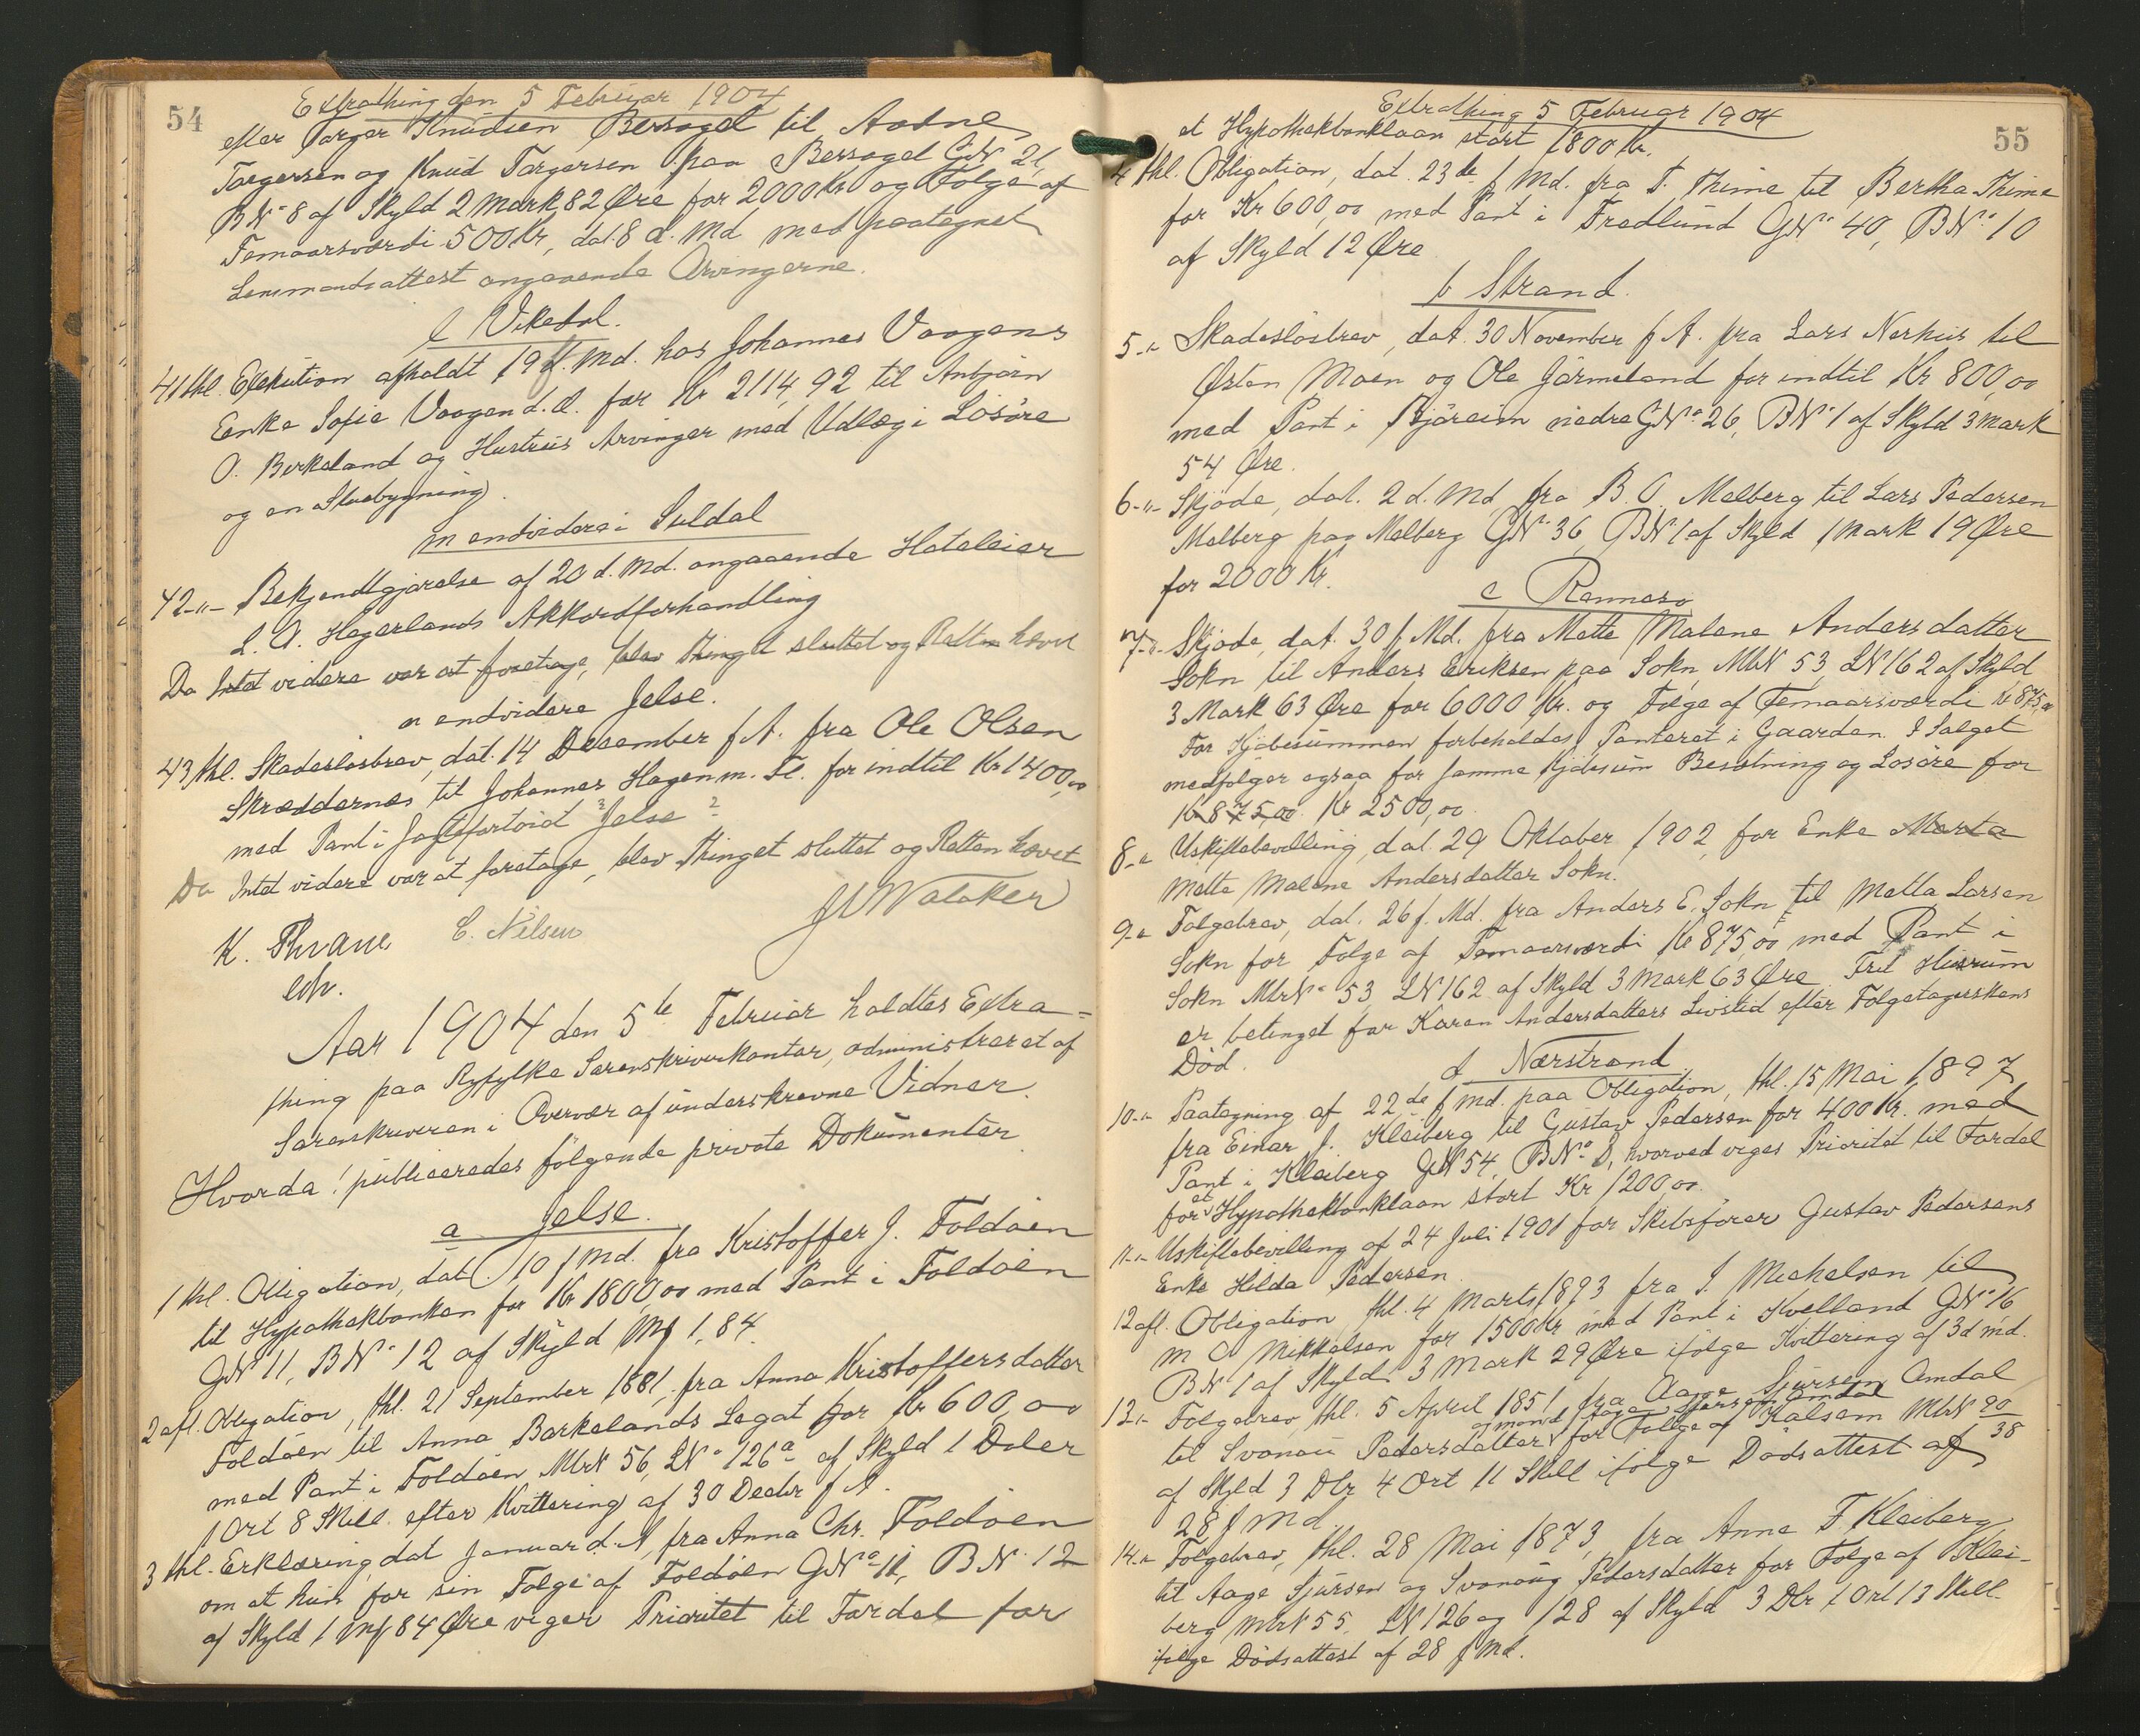 54
Extrathing den 5 Februar 1904
efter Torger Knudsen Bersaget til Aadne
Torgersen og Knud Torgersen paa Bersaget GN 21,
BN° 8 af Skyld 2 Mark 82 Øre for 2000 Kr og Folge af
Femaarsværdi 500 Kr, dat. 8 d. Md med paategnet
Lensmandsattest angaaende Arvingerne.
l Vikedal.
41 thl. Exekution afholdt 19 f. Md. hos Johannes Vaagens
Enke Sofie Vaagen d. Æ. for Kr 2114,92 til Anbjørn
O. Birkeland og Hustrus Arvinger med Udlæg i Løsøre
og en Stuebygning).
m endvidere i Suldal
42-"- Bekjendtgjørelse af 20 d. Md. angaaende Hoteleier
L. A. Hegerlands Akkordforhandling
Da Intet videre var at foretage, blev Thinget sluttet og Retten hævet
n endvidere Jelse.
43 thl. Skadesløsbrev, dat. 14 Desember f A. fra Ole Olsen
Skreddernes til Johannes Hagen m. Fl. for indtil Kr 1400,00
med Pant i Jagtfartøid "Jelse"
Da Intet videre var at foretage, blev Thinget sluttet og Retten hævet
JWWalaker
K. Thrane C. Nilsen
Aar 1904 den 5te Februar holdtes Extra=
thing paa Ryfylke Sorenskriverkontor, administreret af
Sorenskriveren i Overvær af underskrevne Vidner.
Hvorda! publiceredes følgende private Dokumenter
a Jelse.
1 thl. Obligation, dat. 10 f Md. fra Kristoffer J. Foldøen
til Hypothekbanken for Kr 1800,00 med Pant i Foldøen
GN 11, BN° 12 af Skyld Mk 1,84.
2 afl. Obligation, thl. 21 September 1881 fra Anna Kristoffersdatter
Foldøen til Anna Barkelands Legat for Kr 600,00
med Pant i Foldøen MtrN 56, LN° 126a af Skyld 1 Daler
1 Ort 8 Skill. efter Kvittering af 30 Decbr f A.
3 thl. Erklæring, dat Januar d. A, fra Anna Chr. Foldøen
om at hun for sin Folge af Foldøen GN° 11, BN° 12
af Skyld 1 Mk 84 Øre viger Prioritet til Fordel for
55
Extrathing 5 Februar 1904
et Hypothekbanklaan stort 1800 Kr.
4 thl. Obligation, dat. 23de f Md. fra T. Thime til Bertha Thime
for Kr 600,00 med Pant i Fredlund GN° 40, BN° 10
af Skyld 12 Øre
b Strand.
5-"- Skadesløsbrev, dat. 30 November f A. fra Lars Nerhus til
Østen Moen og Ole Jörmeland for indtil Kr 800,00
med Pant i Björeim nedre GN° 26, BN° 1 af Skyld 3 Mark
54 Øre.
6-"- Skjøde, dat. 2 d. Md, fra B. O. Melberg til Lars Pedersen
Melberg paa Melberg GN° 36, BN 1 af Skyld 1 Mark 19 Øre
for 2000 Kr.
c Rennesø
7-"- Skjøde, dat. 30 f. Md. fra Mette Malene Andersdatter
Sokn til Anders Eriksen paa Sokn, MtrN 53, LN 162 af Skyld
3 Mark 63 Øre for 6000 Kr. og Folge af Femaarsværdi Kr 875,00
For Kjöbesummen forbeholdes Panteret i Gaarden. I Salget
medfølger ogsaa for samme Kjöbesum Besætning og Løsøre for
Kr 875,00. Kr 2500,00
8-"- Uskiftebevilling, dat. 29 Oktober 1902, for Enke Marta
Mette Malene Andersdatter Sokn.
9-"- Folgebrev, dat. 26 f. Md. fra Anders E. Sokn til Mette Larsen
Sokn for Folge af Femaarsværdi Kr 875,00 med Pant i
Sokn MtrN° 53, LN 162 af Skyld 3 Mark 63 Øre Frit Husrum
er betinget for Karen Andersdatters Livstid efter Folgetagerskens
Død.
d Nærstrand
10-"- Paategning af 22de f Md. paa Obligation, thl. 15 Mai 1897
fra Einar J. Kleiberg til Gustav Pedersen for 400 Kr. med
Pant i Kleiberg GN 54, BN° 8, hvorved viges Prioritet til Fordel
for et Hypothekbanklaan stort Kr 1200,00.
11-"- Uskiftebevilling af 24 Juli 1901 for Skibsfører Gustav Pedersens
Enke Hilda Pedersen.
12 afl. Obligation, thl. 4 Marts 1893 fra J. Mickelsen til
M O Mikkelsen for 1500 Kr med Pant i Kvelland GN° 16,
BN 1 af Skyld 3 Mark 29 Øre ifølge Kvittering af 3 d Md.
13-"- Folgebrev, thl. 5 April 1851 fra Aage Sjursen Amdal
til Svanaug Pedersdatter og mand Aage Sjursen Amdal for Folge af Kalsem MtrN 20/38
af Skyld 3 Dlr 4 Ort 11 Skill ifølge Dødsattest af
28 f Md.
14-"- Folgebrev, thl. 28 Mai 1873, fra Anne T Kleiberg
til Aage Sjursen og Svanaug Pedersdatter for Folge af Klei-
berg MtrN 55, LN 126 og 128 af Skyld 3 Dlr 1 Ort 13 Skill.
ifølge Dødsattest af 28 f Md.